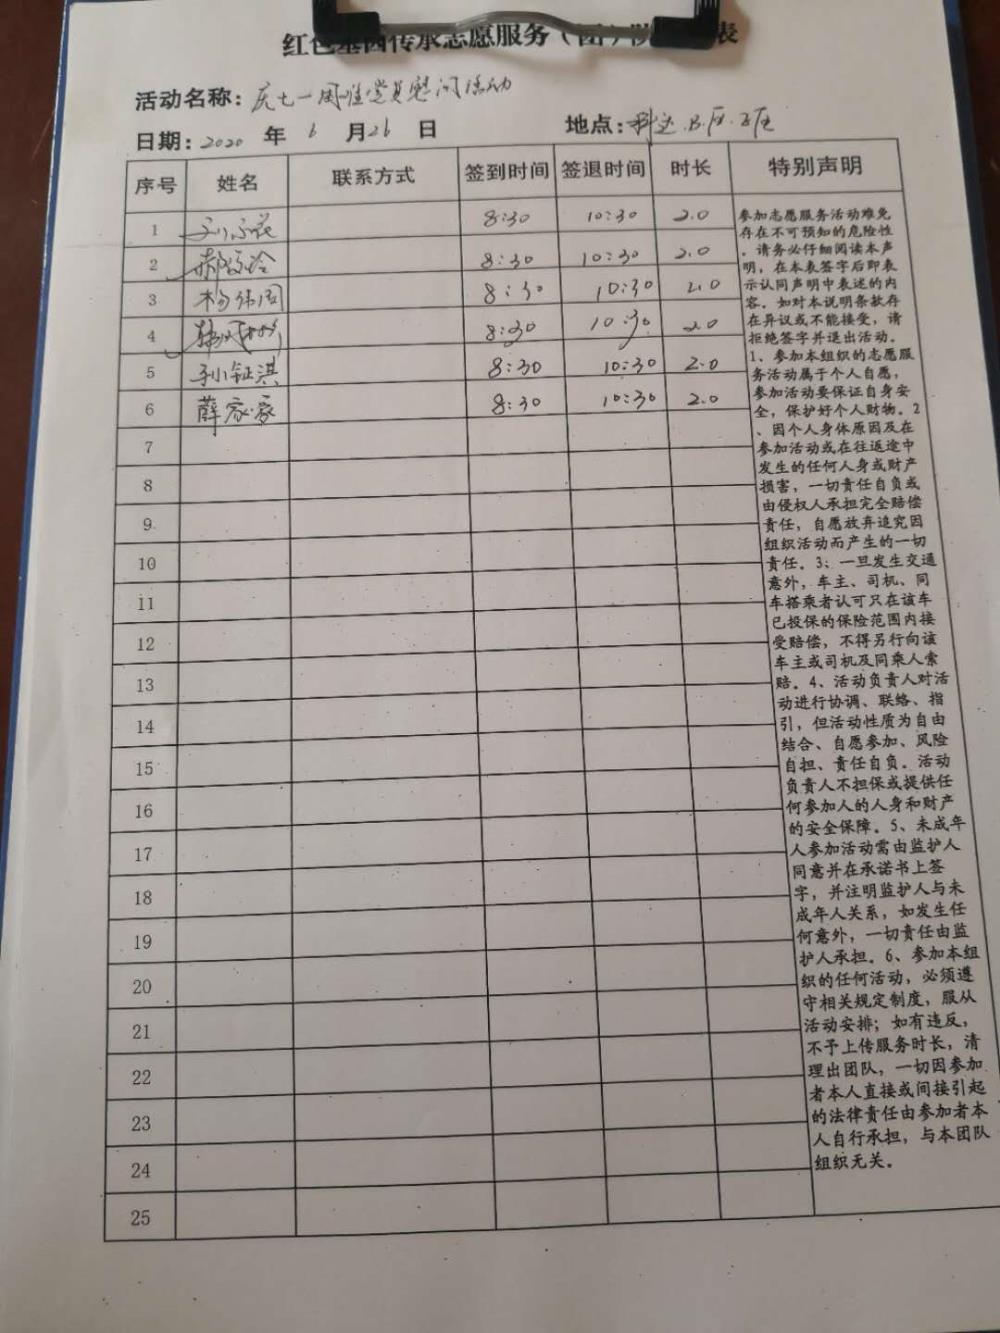 红色基因传承志愿服务（团）队 表
活动名称：庆七一困难党员慰问活动
日期：2020 年 6 月 26 日 地点：科达.B.区.
序号 姓名 联系方式 签到时间 签退时间 时长 特别声明
1 8:30 10:30 2.0
2 8:30 10:30 2.0
3 杨伟周 8:30 10:30 2.0
4 8:30 10:30 2.0
5 孙钲淇 8:30 10:30 2.0
6 薛家豪 8:30 10:30 2.0
7
8
9
10
11
12
13
14
15
16
17
18
19
20
21
22
23
24
25
参加志愿服务活动难免
存在不可预知的危险性
，请务必仔细阅读本声
明，在本表签字后即表
示认同声明中表述的内
容。如对本说明条款存
在异议或不能接受，请
拒绝签字并退出活动。
1、参加本组织的志愿服
务活动属于个人自愿，
参加活动要保证自身安
全，保护好个人财物。2
、因个人身体原因及在
参加活动或在往返途中
发生的任何人身或财产
损害，一切责任自负或
由侵权人承担完全赔偿
责任，自愿放弃追究因
组织活动而产生的一切
责任。3：一旦发生交通
意外，车主、司机、同
车搭乘者认可只在该车
已投保的保险范围内接
受赔偿，不得另行向该
车主或司机及同乘人索
赔。4、活动负责人对活
动进行协调、联络、指
引，但活动性质为自由
结合、自愿参加、风险
自担、责任自负。活动
负责人不担保或提供任
何参加人的人身和财产
的安全保障。5、未成年
人参加活动需由监护人
同意并在承诺书上签
字，并注明监护人与未
成年人关系，如发生任
何意外，一切责任由监
护人承担。6、参加本组
织的任何活动，必须遵
守相关规定制度，服从
活动安排；如有违反，
不予上传服务时长，清
理出团队，一切因参加
者本人直接或间接引起
的法律责任由参加者本
人自行承担，与本团队
组织无关。